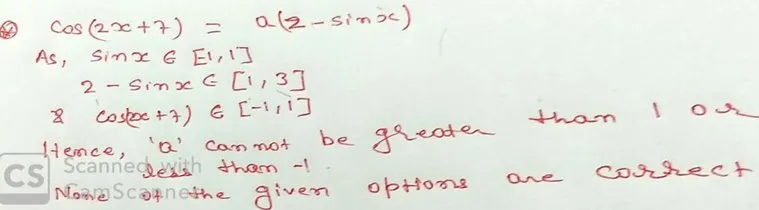 cos(2x+7) = a(2-sinx)
As, sinx ∈ [-1,1]
2 - sinx ∈ [1,3]
& cos(2x+7) ∈ [-1,1]
Hence, 'a' can not be greater than 1 or
less than -1.
None of the given options are correct
CS Scanned with
CamScanner